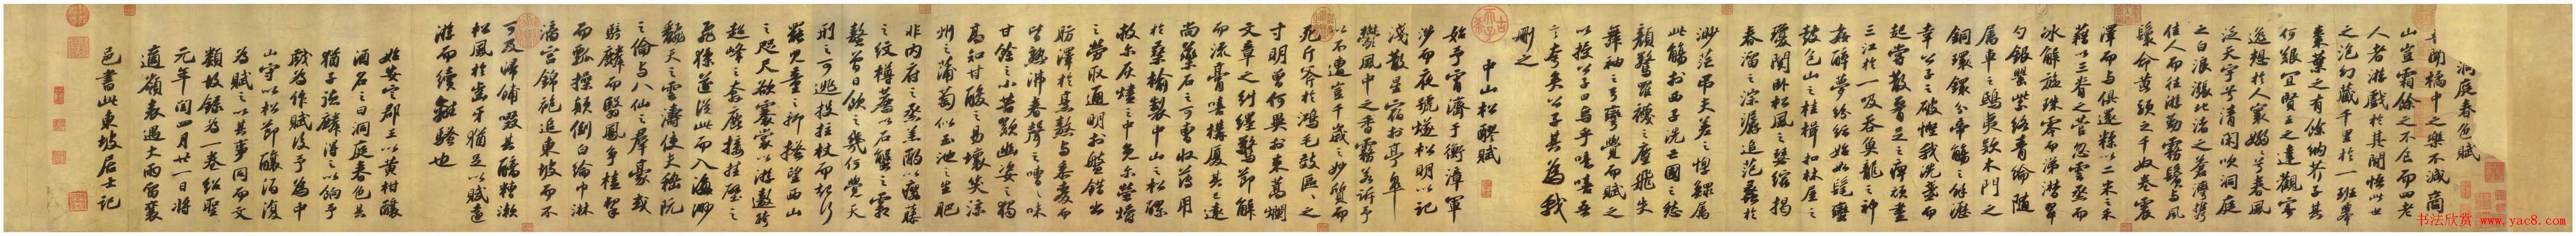 洞庭春色賦
吾聞橘中之樂不減商
山豈霜餘之不食而四老
人者游戲於其間悟此世
之泡幻藏千里於一班舉
棗葉之有餘納芥子其
何艱宜賢王之達觀寄
逸想於人寰嫋兮春風
泛天宇兮清閑吹洞庭
之白浪漲北渚之蒼灣携
佳人而往游勤霧鬢與風
鬟命黃頭之千奴卷震
澤而與俱還糅以二米之禾
藉以三脊之菅忽雲烝而
冰解旋珠零而涕潸翠
勺銀罌紫絡青綸隨
屬車之鴟夷款木門之
銅環分帝觴之餘瀝
幸公子之破慳我洗盞而
起嘗散腰足之痹頑盡
三江於一吸吞魚龍之神
姦醉夢紛紜始如髦蠻
鼓包山之桂楫扣林屋之
瓊關卧松風之瑟縮揭
春溜之淙潺追范蠡於
渺茫弔夫差之惸鰥屬
此觴於西子洗亡國之愁
顏驚羅襪之塵飛失
舞袖之弓彎覺而賦之
以授公子曰烏乎噫嘻吾
言夸矣公子其為我
刪之
中山松醪賦
始予宵濟于衡漳軍
涉而夜號燧松明以記
淺散星宿於亭皋
鬱風中之香霧若訴予
以不遭豈千歲之妙質而
死斤斧於鴻毛效區區之
寸明曾何異於束蒿爛
文章之糾纆驚節解
而流膏嘻構廈其已遠
尚藥石之可曹收薄用
於桑榆製中山之松醪
救爾灰燼之中免爾螢爝
之勞取通明於盤錯出
肪澤於烹熬與黍麥而
皆熟沸舂聲之嘈嘈味
甘餘之小苦歎幽姿之獨
高知甘酸之易壞笑涼
州之蒲萄似玉池之生肥
非內府之烝羔酌以癭藤
之紋樽薦以石蟹之霜
螯曾日飲之幾何覺天
刑之可逃投拄杖而起行
罷兒童之抑搔望西山
之咫尺欲褰裳以游遨跨
超峰之奔鹿接挂壁之
飛猱遂從此而入海渺
翻天之雲濤使夫嵇阮
之倫與八仙之羣豪或
騎麟而翳鳳爭榼挈
而瓢操顛倒白綸巾淋
漓宮錦袍追東坡而不
可及歸餔歠其醨糟漱
松風於齒牙猶足以賦遠
游而續離騷也
始安定郡王以黃柑釀
酒名之曰洞庭春色其
猶子德麟得之以餉予
戲為作賦後予為中
山守以松節釀酒復
為賦之以其事同而文
類故錄為一卷紹聖
元年閏四月廿一日將
適嶺表遇大雨留襄
邑書此東坡居士記
书法欣赏 www.yac8.com